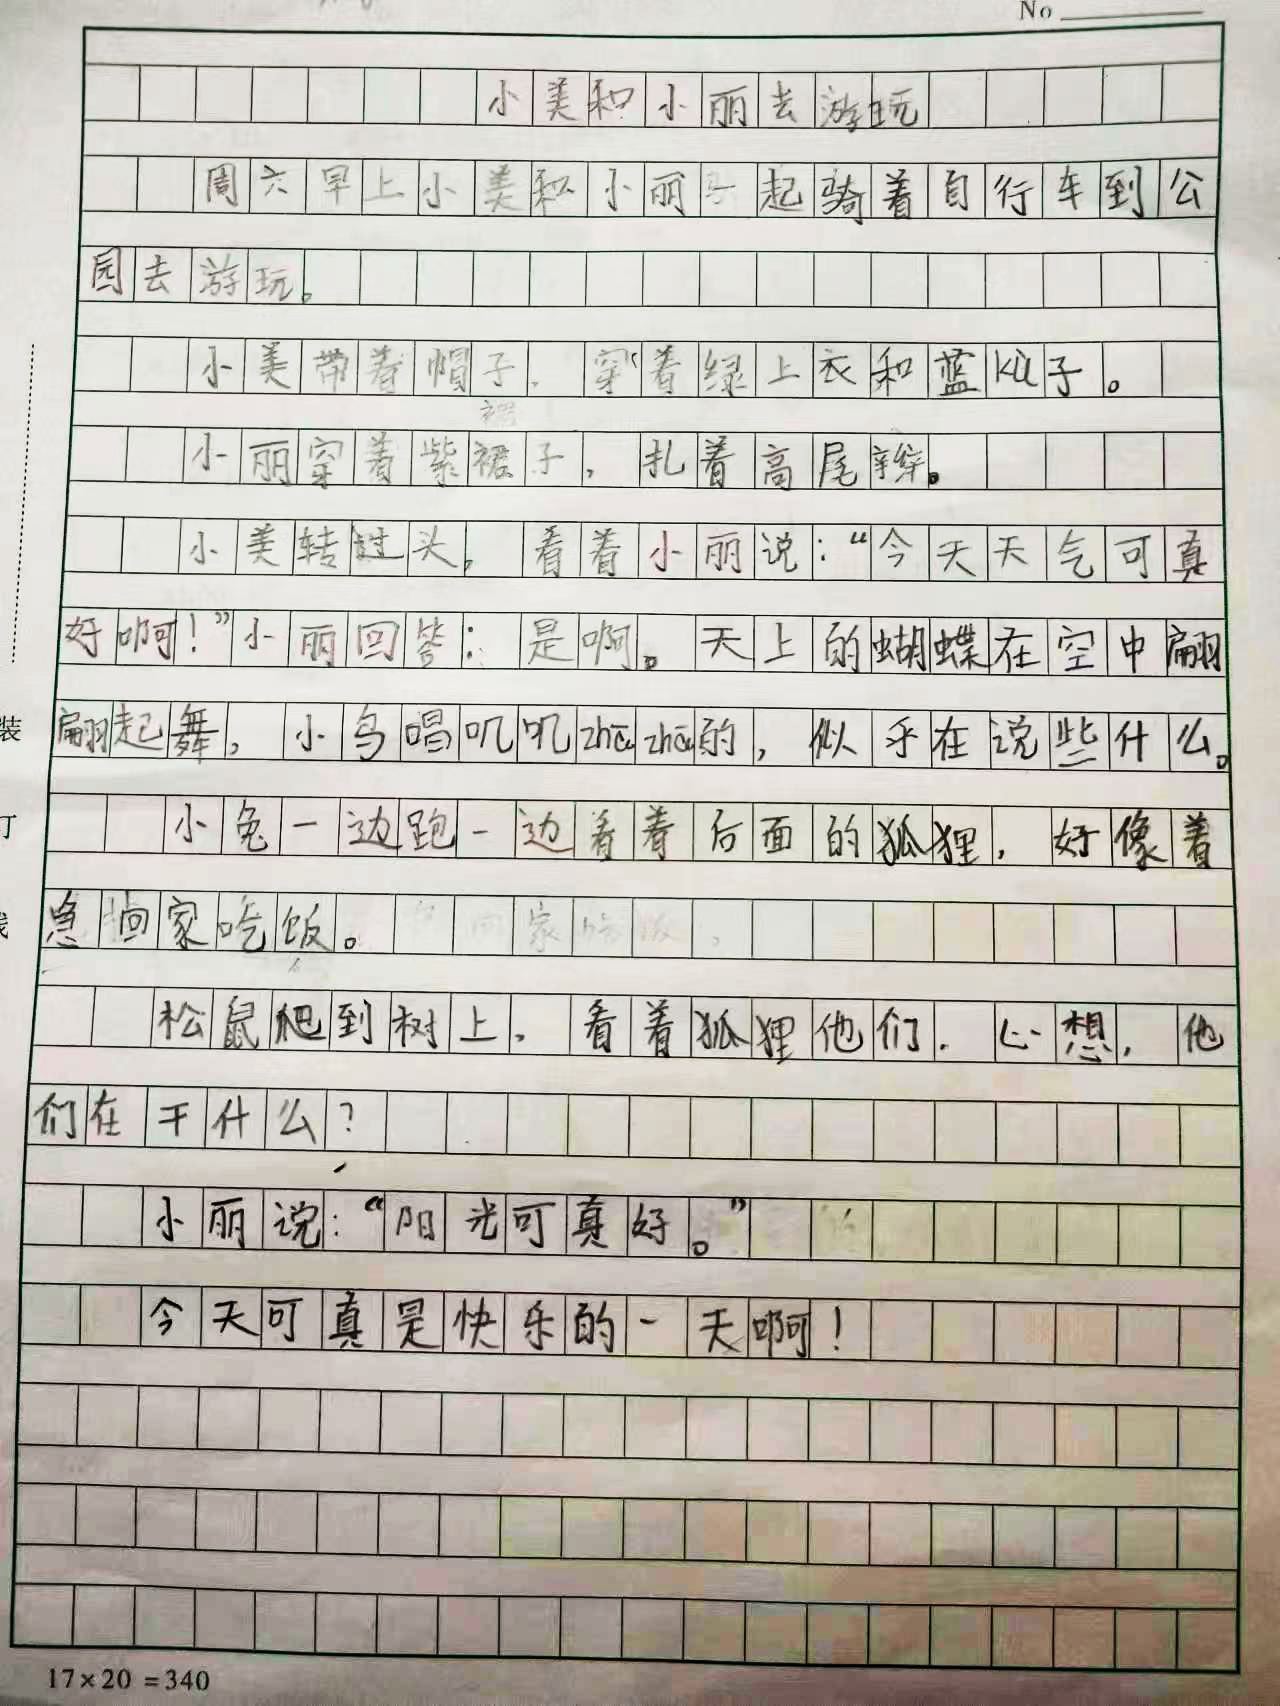 No
小美和小丽去游玩
周六早上小美和小丽一起骑着自行车到公
园去游玩。
小美带着帽子，穿着绿上衣和蓝kù子。
小丽穿着紫裙子，扎着高尾辫。
小美转过头，看着小丽说：“今天天气可真
好啊！”小丽回答：是啊。天上的蝴蝶在空中翩
翩起舞，小鸟唱叽叽zhāzhā的，似乎在说些什么。
小兔一边跑一边看着后面的狐狸，好像着
急回家吃饭。
松鼠爬到树上，看着狐狸他们，心想，他
们在干什么？
小丽说：“阳光可真好。”
今天可真是快乐的一天啊！
17×20=340
装
订
线